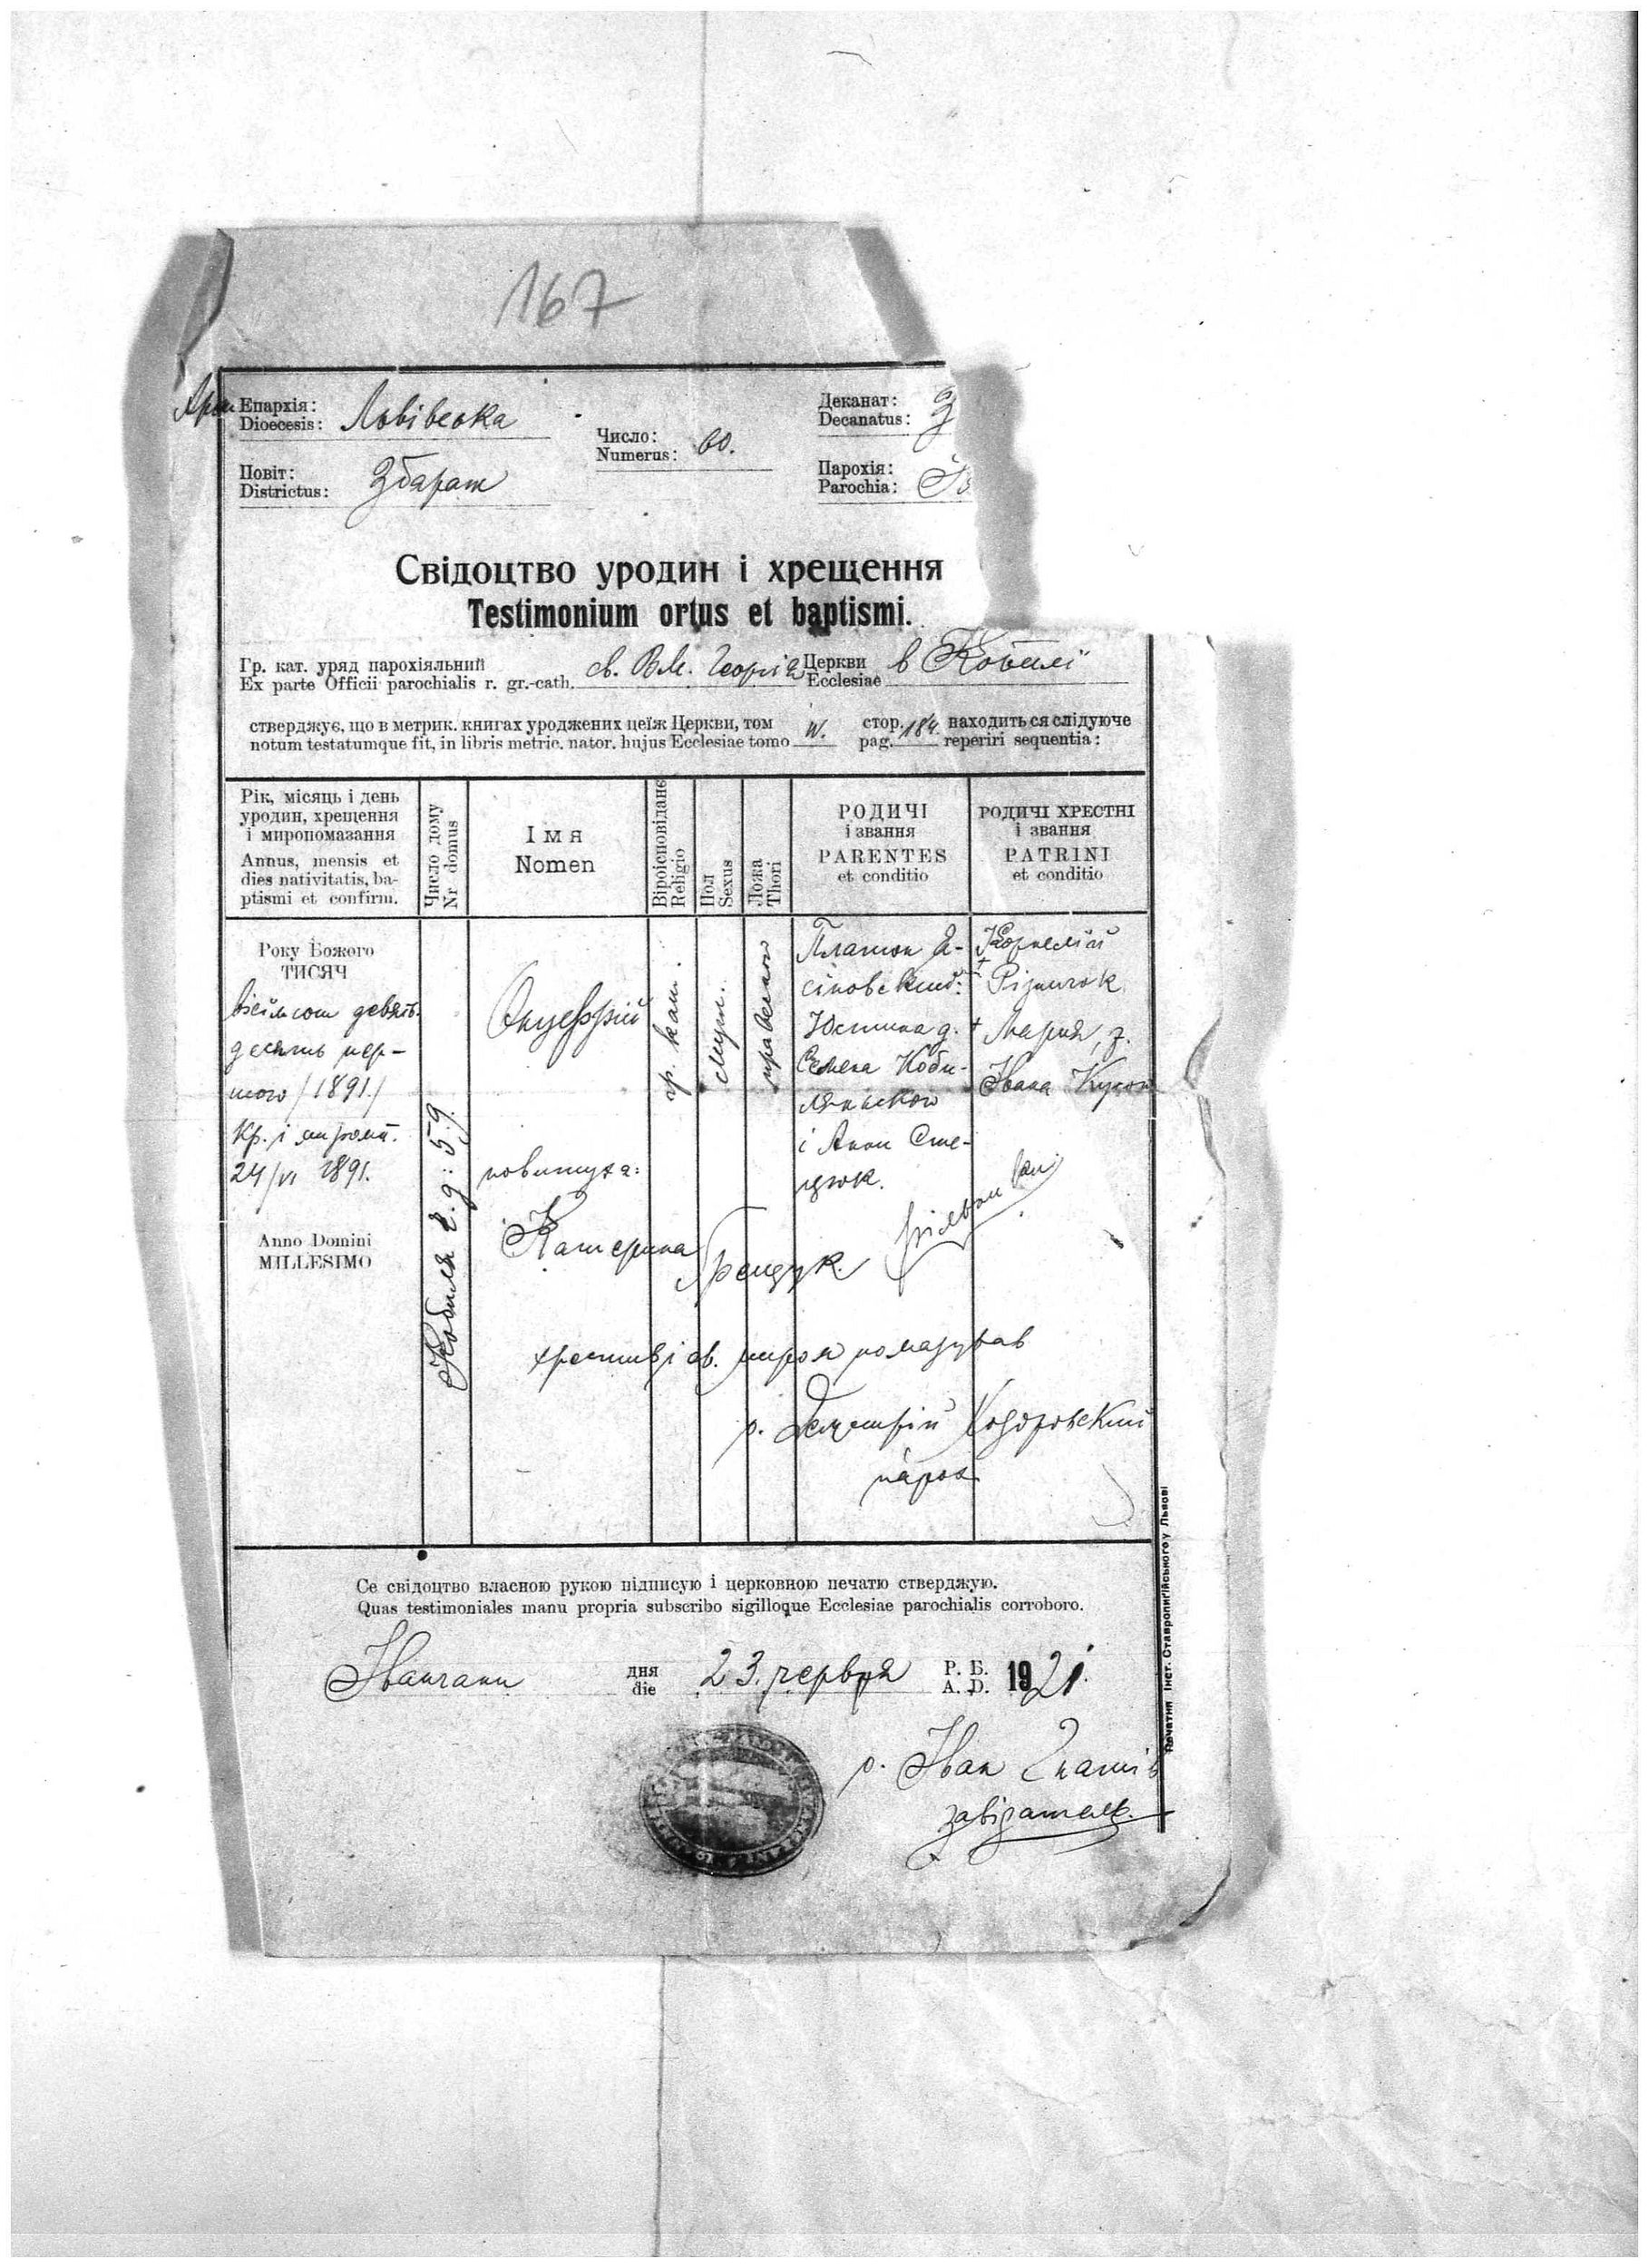 167
Архи Епархія: Львівска
Dioecesis:
Число: 60.
Numerus:
Деканат: З
Decanatus:
Повіт: Збараж
Districtus:
Парохія:
Parochia:
Свідоцтво уродин і хрещення
Testimonium ortus et baptismi.
Гр. кат. уряд парохіяльний св. Вм. Георгія Церкви в Кобилї
Ex parte Officii parochialis r. gr.-cath. Ecclesiae
стверджує, що в метрик. книгах уроджених цеїж Церкви, том IV. стор. 184. находить ся слідуюче
notum testatumque fit, in libris metric. nator. hujus Ecclesiae tomo pag. reperiri sequentia:
Рік, місяць і день
уродин, хрещення
і миропомазання
Annus, mensis et
dies nativitatis, ba-
ptismi et confirm.
Число дому
Nr domus
Імя
Nomen
Віроісповіданє
Religio
Пол
Sexus
Ложа
Thori
РОДИЧІ
і звання
PARENTES
et conditio
РОДИЧІ ХРЕСТНІ
і звання
PATRINI
et conditio
Року Божого
ТИСЯЧ
вісімсот девять-
десять пер-
шого /1891./
Хр. і миром.
24/VI 1891.
Anno Domini
MILLESIMO
Кобиля ч. д: 59.
Онуфрій
повитуха:
Катерина Грещук
гр. кат.
муж.
правесного
Платон Я-
сіновский:
Юстина д.
Семена Коби-
лянского
і Анни Сте-
цюк.
Корнелий
Різничок
+ Мария, ж.
Івана
хрестив і св. миром помазував
о. Димитрій Ходоровский
парох
Се свідоцтво власною рукою підписую і церковною печатю стверджую.
Quas testimoniales manu propria subscribo sigilloque Ecclesiae parochialis corroboro.
Іванчани дня 23. червня Р. Б. 1921.
die A. D.
о. Іван Гнатів
завідатель.
Печатня Інст. Ставропигійського у Львові